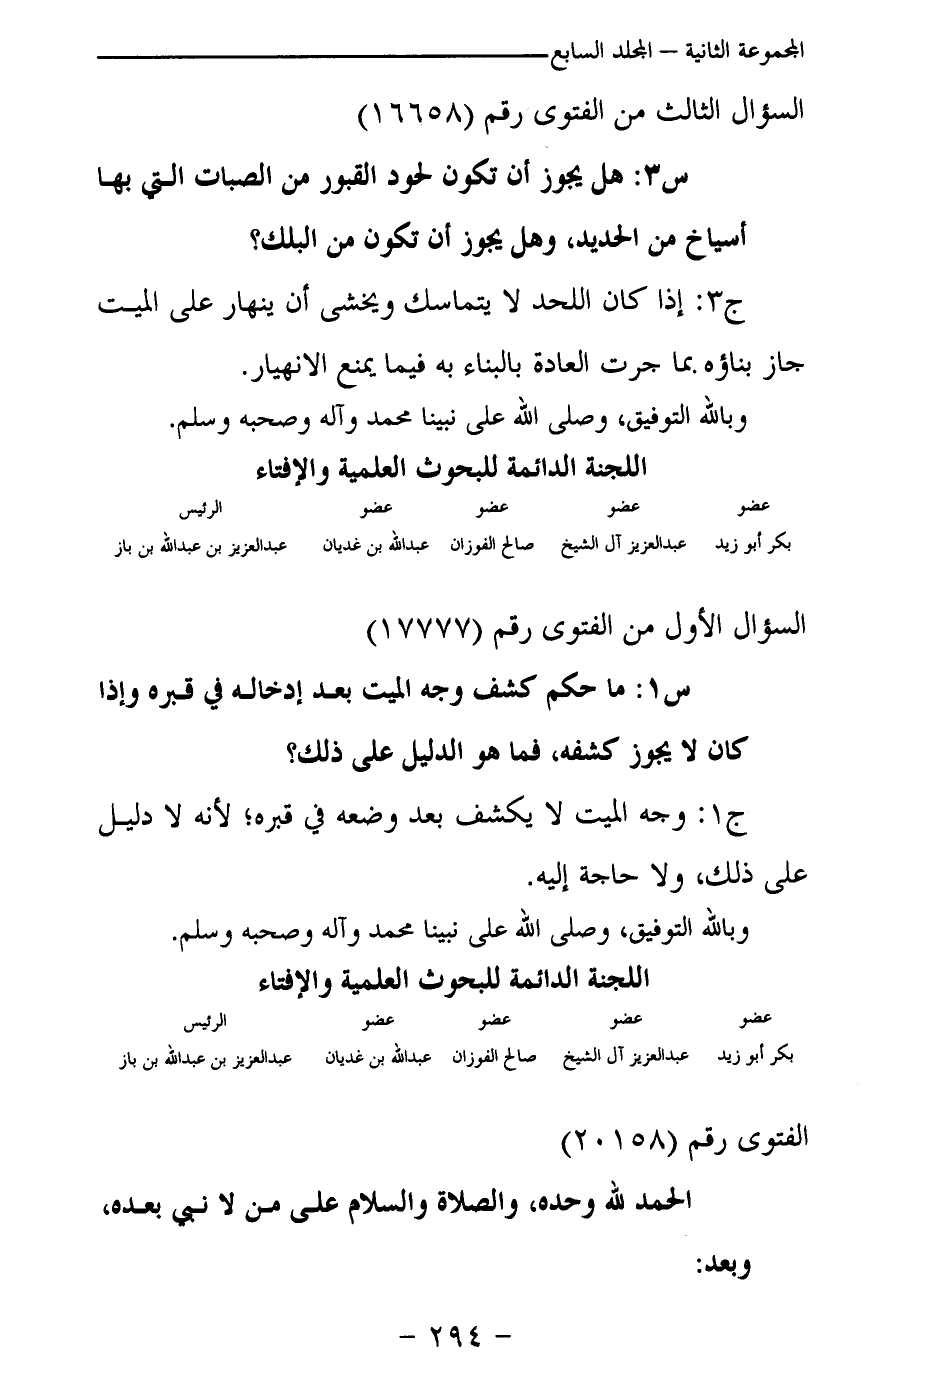 المجموعة الثانية – المجلد السابع
السؤال الثالث من الفتوى رقم (١٦٦٥٨)
س٣: هل يجوز أن تكون لحود القبور من الصبات التي بها
أسياخ من الحديد، وهل يجوز أن تكون من البلك؟
ج٣: إذا كان اللحد لا يتماسك ويخشى أن ينهار على الميت
جاز بناؤه بما جرت العادة بالبناء به فيما يمنع الانهيار.
وبالله التوفيق، وصلى الله على نبينا محمد وآله وصحبه وسلم.
اللجنة الدائمة للبحوث العلمية والإفتاء
عضو عضو عضو عضو الرئيس
بكر أبو زيد عبدالعزيز آل الشيخ صالح الفوزان عبدالله بن غديان عبدالعزيز بن عبدالله بن باز
السؤال الأول من الفتوى رقم (١٧٧٧٧)
س١: ما حكم كشف وجه الميت بعد إدخاله في قبره وإذا
كان لا يجوز كشفه، فما هو الدليل على ذلك؟
ج١: وجه الميت لا يكشف بعد وضعه في قبره؛ لأنه لا دليل
على ذلك، ولا حاجة إليه.
وبالله التوفيق، وصلى الله على نبينا محمد وآله وصحبه وسلم.
اللجنة الدائمة للبحوث العلمية والإفتاء
عضو عضو عضو عضو الرئيس
بكر أبو زيد عبدالعزيز آل الشيخ صالح الفوزان عبدالله بن غديان عبدالعزيز بن عبدالله بن باز
الفتوى رقم (٢٠١٥٨)
الحمد لله وحده، والصلاة والسلام على من لا نبي بعده،
وبعد:
- ٢٩٤ -